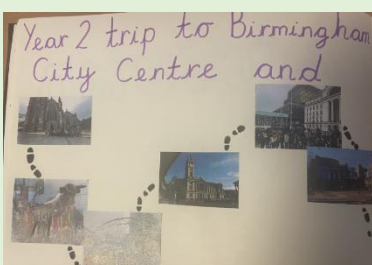 Year 2 trip to Birmingham
City Centre and